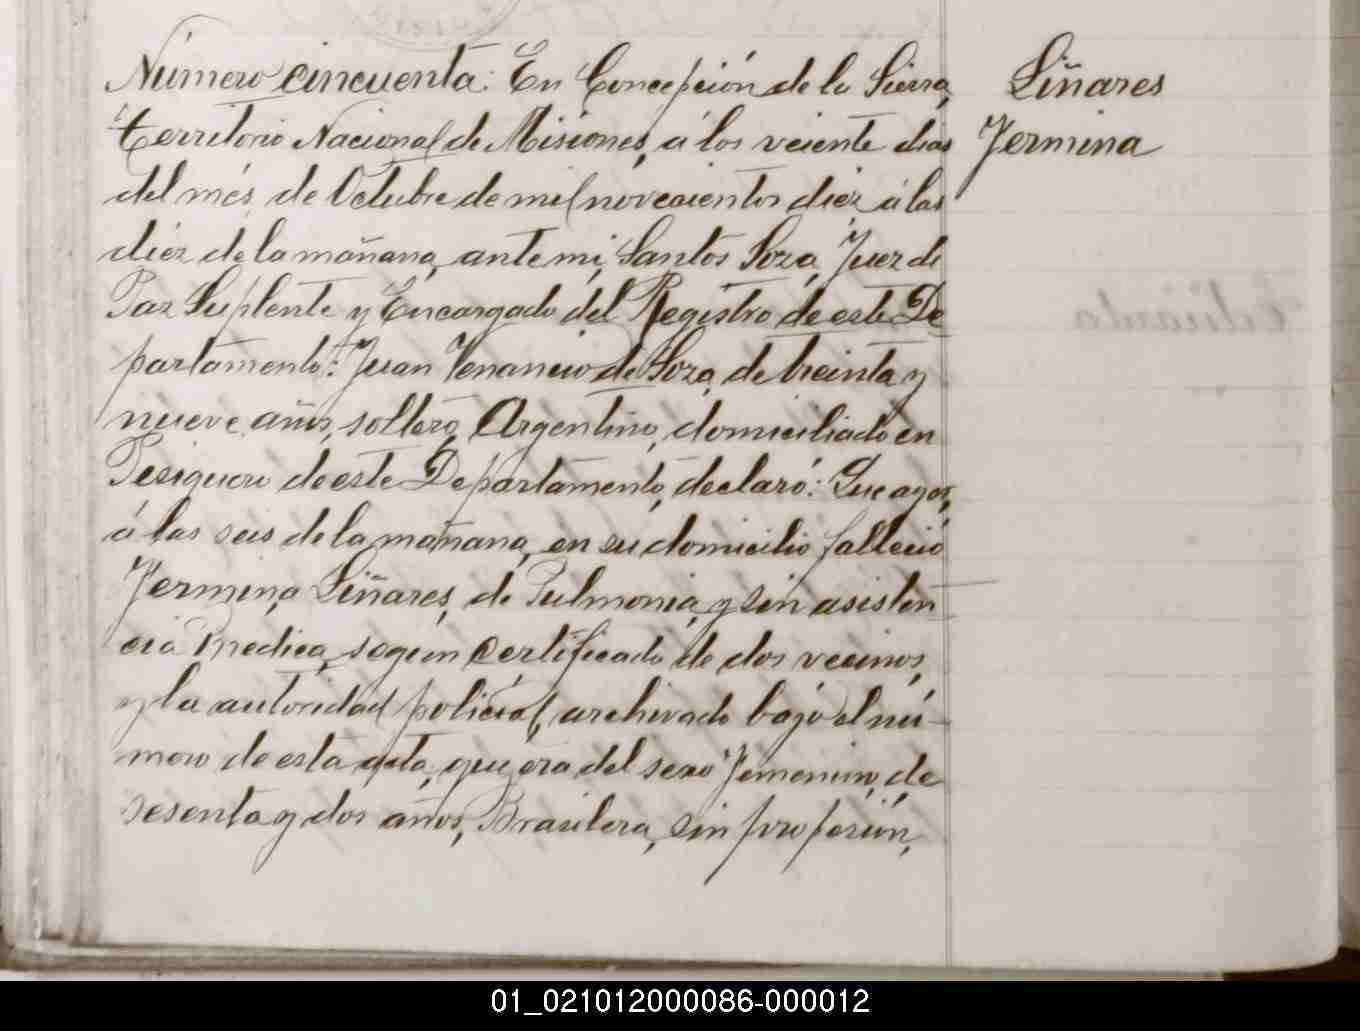 Número cincuenta: En Concepción de la Sierra,
Territorio Nacional de Misiones, á los veiente dias
del més, de Octubre de mil novecientos diéz á las
diéz de la mañana, ante mi, Santos Soza, Juez de
Paz Suplente y Encargado del Registro de este De
partamento: Juan Venancio de Soza, de treinta y
nueve, años, soltero, Argentino, domiciliado en
Pesiguero de este Departamento, declaró: Que ayer,
á las seis de la mañana, en su domicilio falleció
Fermina Liñares, de Pulmonia, y sin asisten
cia Medica, según certificado de dos vecinos,
y la autoridad policial, archivado bajo el nú-
mero de esta acta, que era del sexo Femenino, de
sesenta y dos años, Brasilera, sin profesión,
Liñares
Fermina
Eduardo
01_021012000086-000012